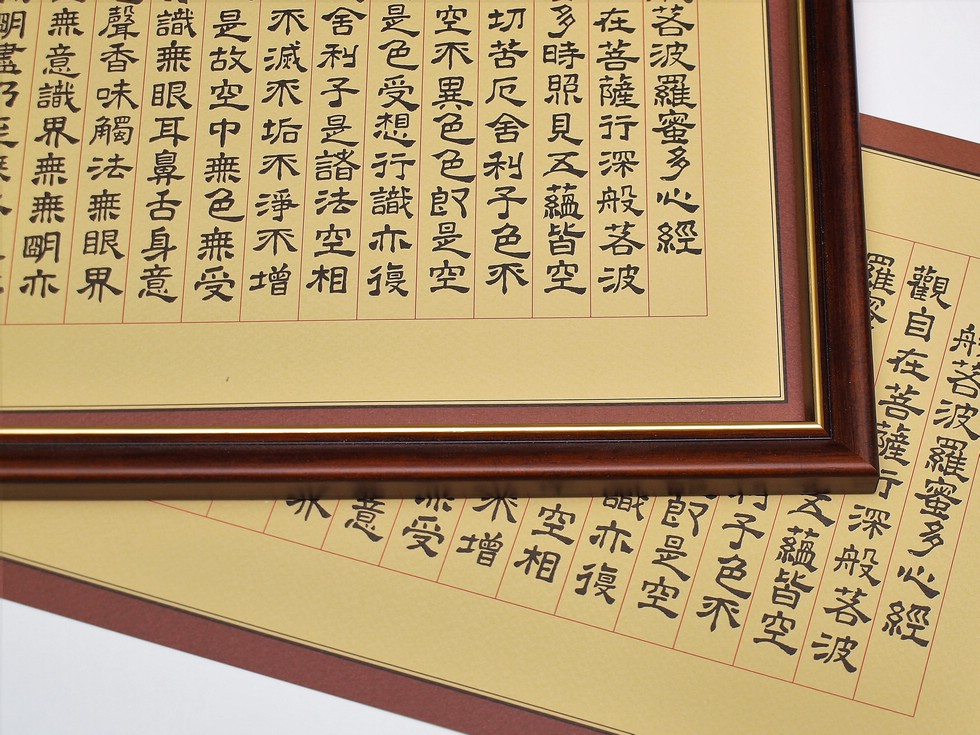 若波羅蜜多心經
在菩薩行深般若波
多時照見五蘊皆空
切苦厄舍利子色不
空不異色色即是空
是色受想行識亦復
舍利子是諸法空相
不滅不垢不淨不增
是故空中無色無受
識無眼耳鼻舌身意
聲香味觸法無眼界
無意識界無無明亦
明盡乃至
般若波羅蜜多心經
觀自在菩薩行深般若波
羅蜜
五蘊皆空
利子色不
即是空
識亦復
空相
不增
受
意